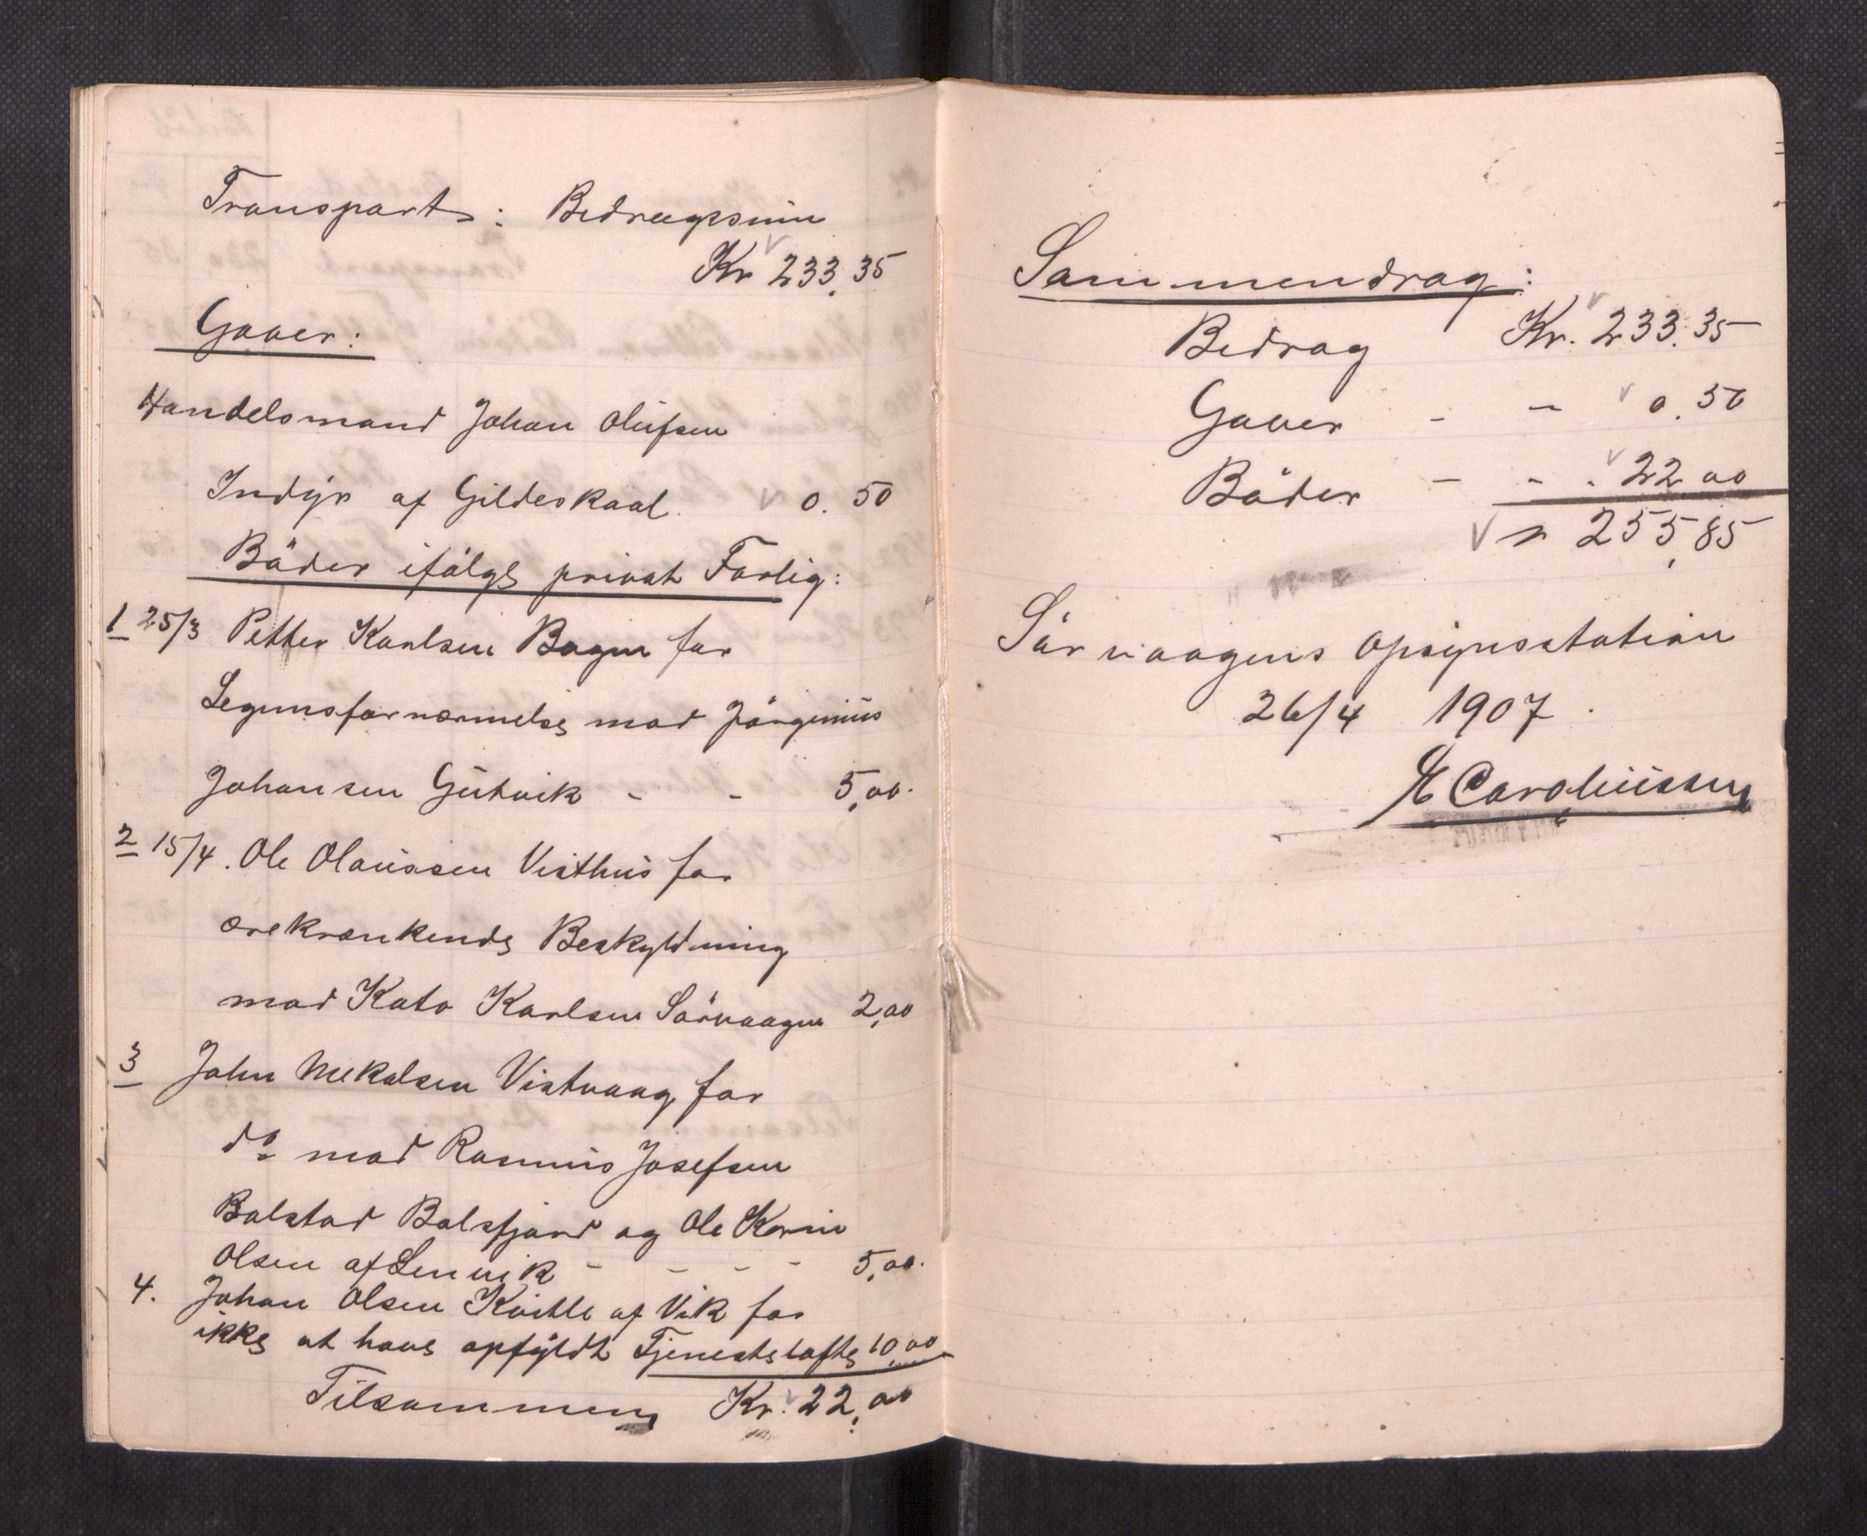 Transport: Bedragssum
Kr 233.35
Gaver:
Handelsmand Johan Olufsen
Indyr af Gildeskaal. 0.50
Böder ifölge privat Forlig:
1 25/3 Petter Karlsen Bogen for
Legemsfornærmelse mod Jörginius
Johansen Gutvik - - 5,00.
2 15/4. Ole Olaussen Visthus for
ærekrænkende Beskyldning
mod Kato Karlsen Sörvaagen 2,00
3 John Mekalsen Vistvaag for
do mod Rasmus Josefsen
Balstad Balsfjord og Ole Korin
Olsen af Lenvik - - - - 5,00.
4. Johan Olsen Kvitle af Vik for
ikke at have opfyldt Tjenestelöfte 10,00
Tilsammen Kr. 22,00
Sammendrag:
Bedrag Kr. 233.35
Gaver - - 0.50
Böder - - - 22,00
" 255,85
Sörvaagens Opsynsstation
26/4 1907.
H Caroliussen